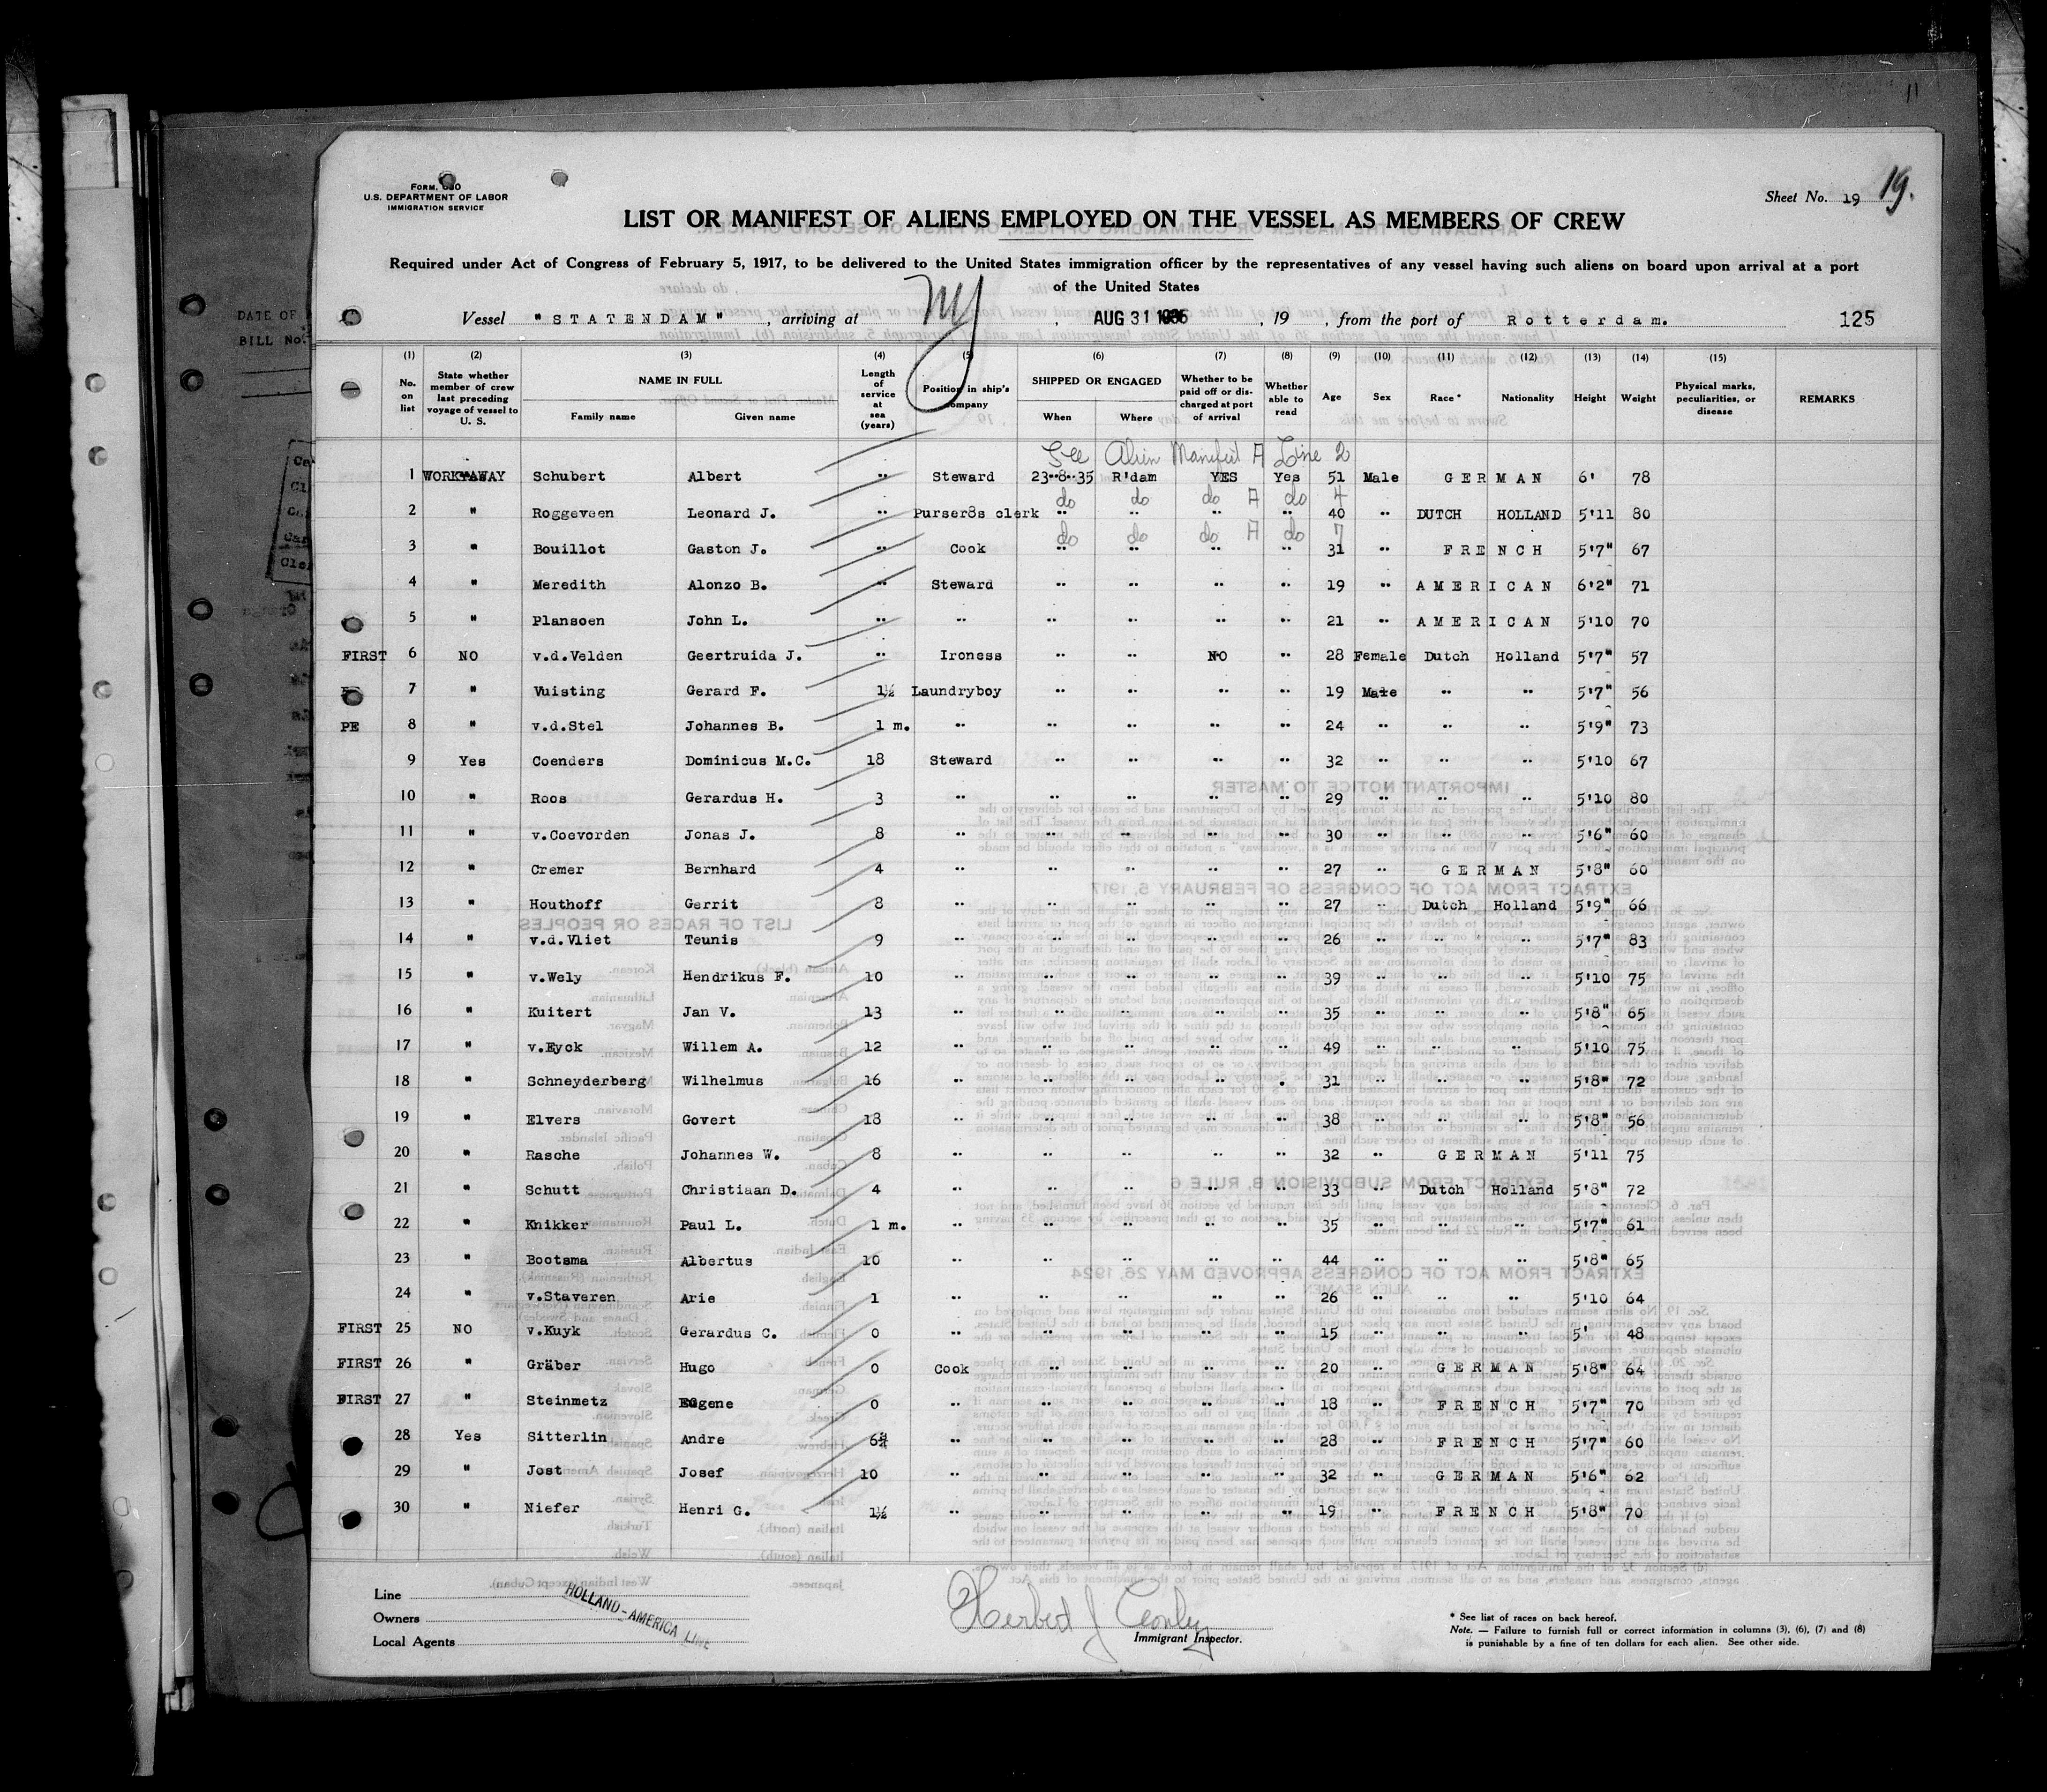 11
DATE OF
BILL No.
FORM, 680
U.S. DEPARTMENT OF LABOR
IMMIGRATION SERVICE
Sheet No. 19 19.
LIST OR MANIFEST OF ALIENS EMPLOYED ON THE VESSEL AS MEMBERS OF CREW
Required under Act of Congress of February 5, 1917, to be delivered to the United States immigration officer by the representatives of any vessel having such aliens on board upon arrival at a port
of the United States
Vessel "STATENDAM", arriving at NY, AUG 31 1935, 19 , from the port of Rotterdam. 125
(1) (2) (3) (4) (5) (6) (7) (8) (9) (10) (11) (12) (13) (14) (15)
No. on list State whether member of crew last preceding voyage of vessel to U. S. NAME IN FULL Family name Given name Length of service at sea (years) Position in ship's company SHIPPED OR ENGAGED When Where Whether to be paid off or discharged at port of arrival Whether able to read Age Sex Race * Nationality Height Weight Physical marks, peculiarities, or disease REMARKS
See Alien Manifest A Line 2
1 WORKAWAY Schubert Albert " Steward 23-8-35 R'dam YES Yes 51 Male GERMAN 6' 78
do do do A do 4
2 " Roggeveen Leonard J. " Purser8s clerk " " " " 40 " DUTCH HOLLAND 5'11 80
do do do A do 7
3 " Bouillot Gaston J. " Cook " " " " 31 " FRENCH 5'7" 67
4 " Meredith Alonzo B. " Steward " " " " 19 " AMERICAN 6'2" 71
5 " Plansoen John L. " " " " " " 21 " AMERICAN 5'10 70
FIRST 6 NO v.d.Velden Geertruida J. " Ironess " " NO " 28 Female Dutch Holland 5'7" 57
7 " Vuisting Gerard F. 1½ Laundryboy " " " " 19 Male " " 5'7" 56
PE 8 " v.d.Stel Johannes B. 1 m. " " " " " 24 " " " 5'9" 73
9 Yes Coenders Dominicus M.C. 18 Steward " " " " 32 " " " 5'10 67
10 " Roos Gerardus H. 3 " " " " " 29 " " " 5'10 80
11 " v.Coevorden Jonas J. 8 " " " " " 30 " " " 5'6" 60
12 " Cremer Bernhard 4 " " " " " 27 " GERMAN 5'8" 60
13 " Houthoff Gerrit 8 " " " " " 27 " Dutch Holland 5'9" 66
14 " v.d.Vliet Teunis 9 " " " " " 26 " " " 5'7" 83
15 " v.Wely Hendrikus F. 10 " " " " " 39 " " " 5'10 75
16 " Kuitert Jan V. 13 " " " " " 35 " " " 5'8" 65
17 " v.Eyck Willem A. 12 " " " " " 49 " " " 5'10 75
18 " Schneyderberg Wilhelmus 16 " " " " " 31 " " " 5'8" 72
19 " Elvers Govert 18 " " " " " 38 " " " 5'8" 56
20 " Rasche Johannes W. 8 " " " " " 32 " GERMAN 5'11 75
21 " Schutt Christiaan D. 4 " " " " " 33 " Dutch Holland 5'8" 72
22 " Knikker Paul L. 1 m. " " " " " 35 " " " 5'7" 61
23 " Bootsma Albertus 10 " " " " " 44 " " " 5'8" 65
24 " v.Staveren Arie 1 " " " " " 26 " " " 5'10 64
FIRST 25 NO v.Kuyk Gerardus C. 0 " " " " " 15 " " " 5' 48
FIRST 26 " Gräber Hugo 0 Cook " " " " 20 " GERMAN 5'8" 64
FIRST 27 " Steinmetz Eugene 0 " " " " " 18 " FRENCH 5'7" 70
28 Yes Sitterlin Andre 6¾ " " " " " 28 " FRENCH 5'7" 60
29 " Jost Josef 10 " " " " " 32 " GERMAN 5'6" 62
30 " Niefer Henri G. 1½ " " " " " 19 " FRENCH 5'8" 70
Line
Owners
Local Agents
HOLLAND-AMERICA LINE
Herbert J Conley
Immigrant Inspector.
* See list of races on back hereof.
Note. — Failure to furnish full or correct information in columns (3), (6), (7) and (8)
is punishable by a fine of ten dollars for each alien. See other side.